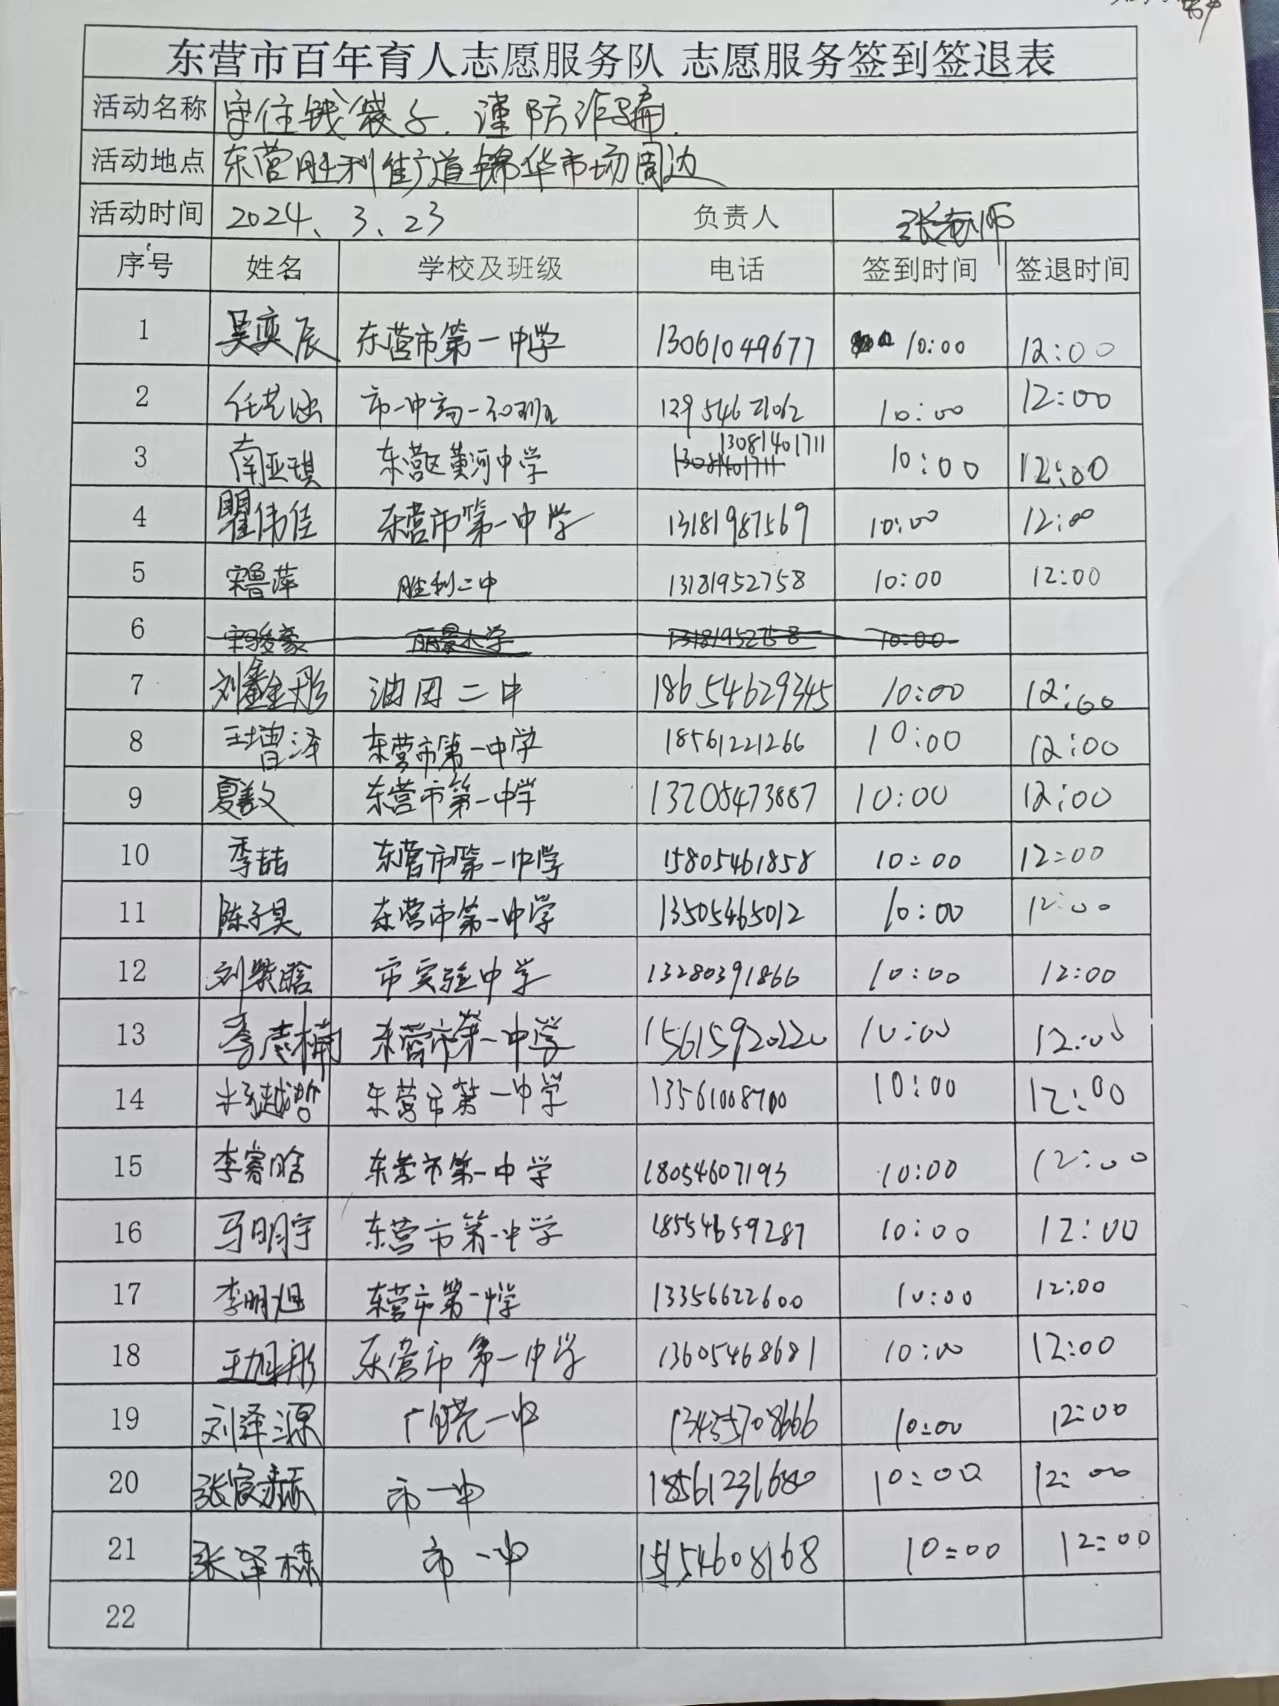 东营市百年育人志愿服务队 志愿服务签到签退表
活动名称 守住钱袋子.谨防诈骗.
活动地点 东营胜利街道锦华市场周边
活动时间 2024、3、23 负责人 张老师
序号 姓名 学校及班级 电话 签到时间 签退时间
1 吴奕辰 东营市第一中学 13061049677 10:00 12:00
2 任艺涵 市一中高一30班 12954621062 10:00 12:00
3 南亚琪 东营区黄河中学 13081401711 10:00 12:00
4 瞿伟佳 东营市第一中学 13181987569 10:00 12:00
5 宋鲁萍 胜利二中 13181952758 10:00 12:00
6 宋骏豪 丽景小学 13181952758 10:00
7 刘鑫彤 油田二中 18654629345 10:00 12:00
8 王增泽 东营市第一中学 18561221266 10:00 12:00
9 夏数 东营市第一中学 13205473887 10:00 12:00
10 李喆 东营市第一中学 15805461858 10:00 12:00
11 陈子昊 东营市第一中学 13505465012 10:00 12:00
12 刘紫晗 市实验中学 13280391866 10:00 12:00
13 李志楠 东营市第一中学 15615920220 10:00 12:00
14 张越哲 东营市第一中学 13561008700 10:00 12:00
15 李睿晗 东营市第一中学 18054607193 10:00 12:00
16 马明宇 东营市第一中学 18554659287 10:00 12:00
17 李明旭 东营市第一中学 13356622600 10:00 12:00
18 王旭彤 东营市第一中学 13605468681 10:00 12:00
19 刘泽源 广饶一中 13435708666 10:00 12:00
20 张宸赫 市一中 18561231680 10:00 12:00
21 张泽栋 市一中 15154608168 10:00 12:00
22